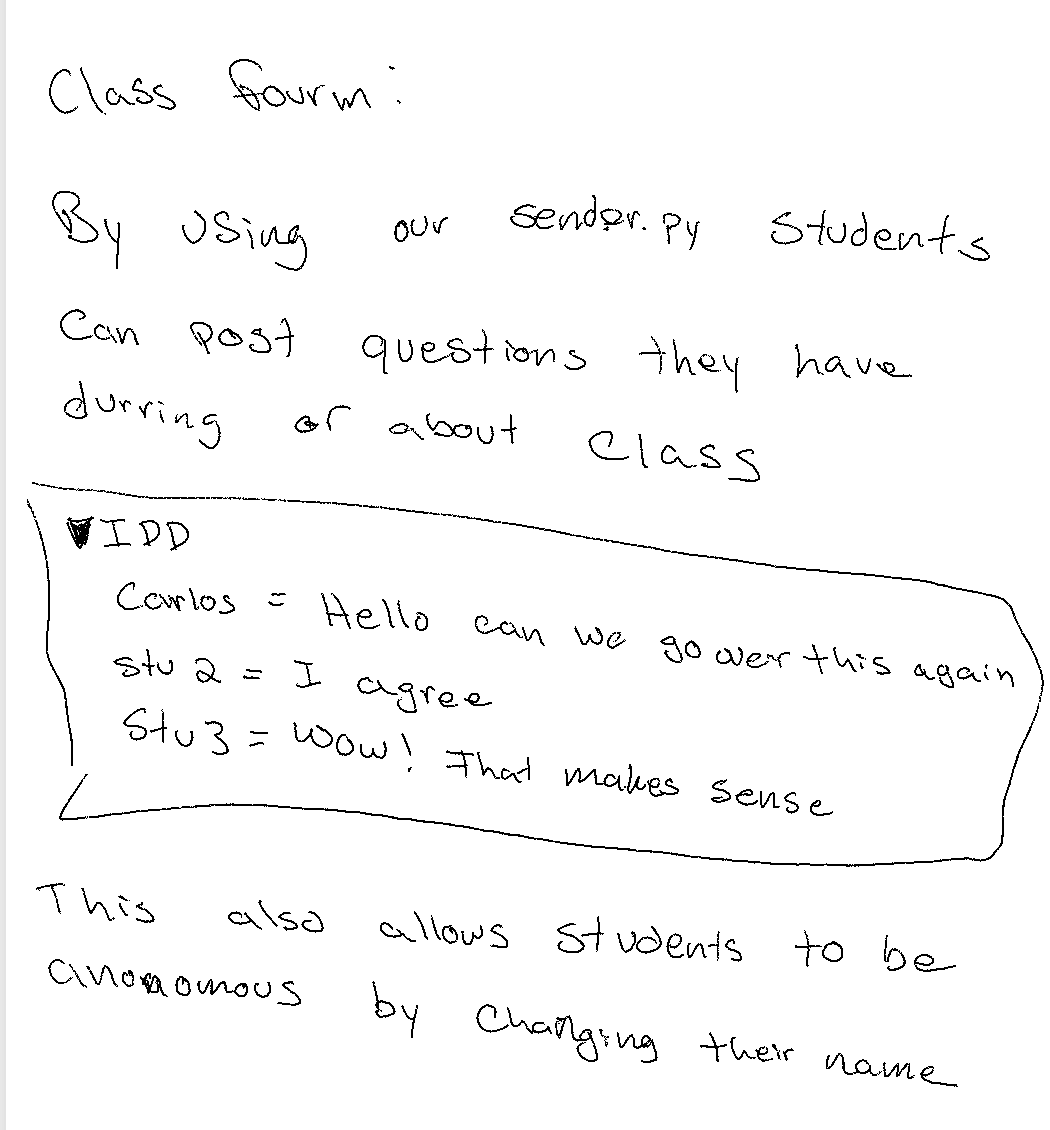 Class fourm:
By using our sender.py students
Can post questions they have
durring or about Class
▼IDD
Carlos = Hello can we go over this again
stu 2 = I agree
Stu 3 = Wow! That makes sense
This also allows students to be
anonomous by changing their name